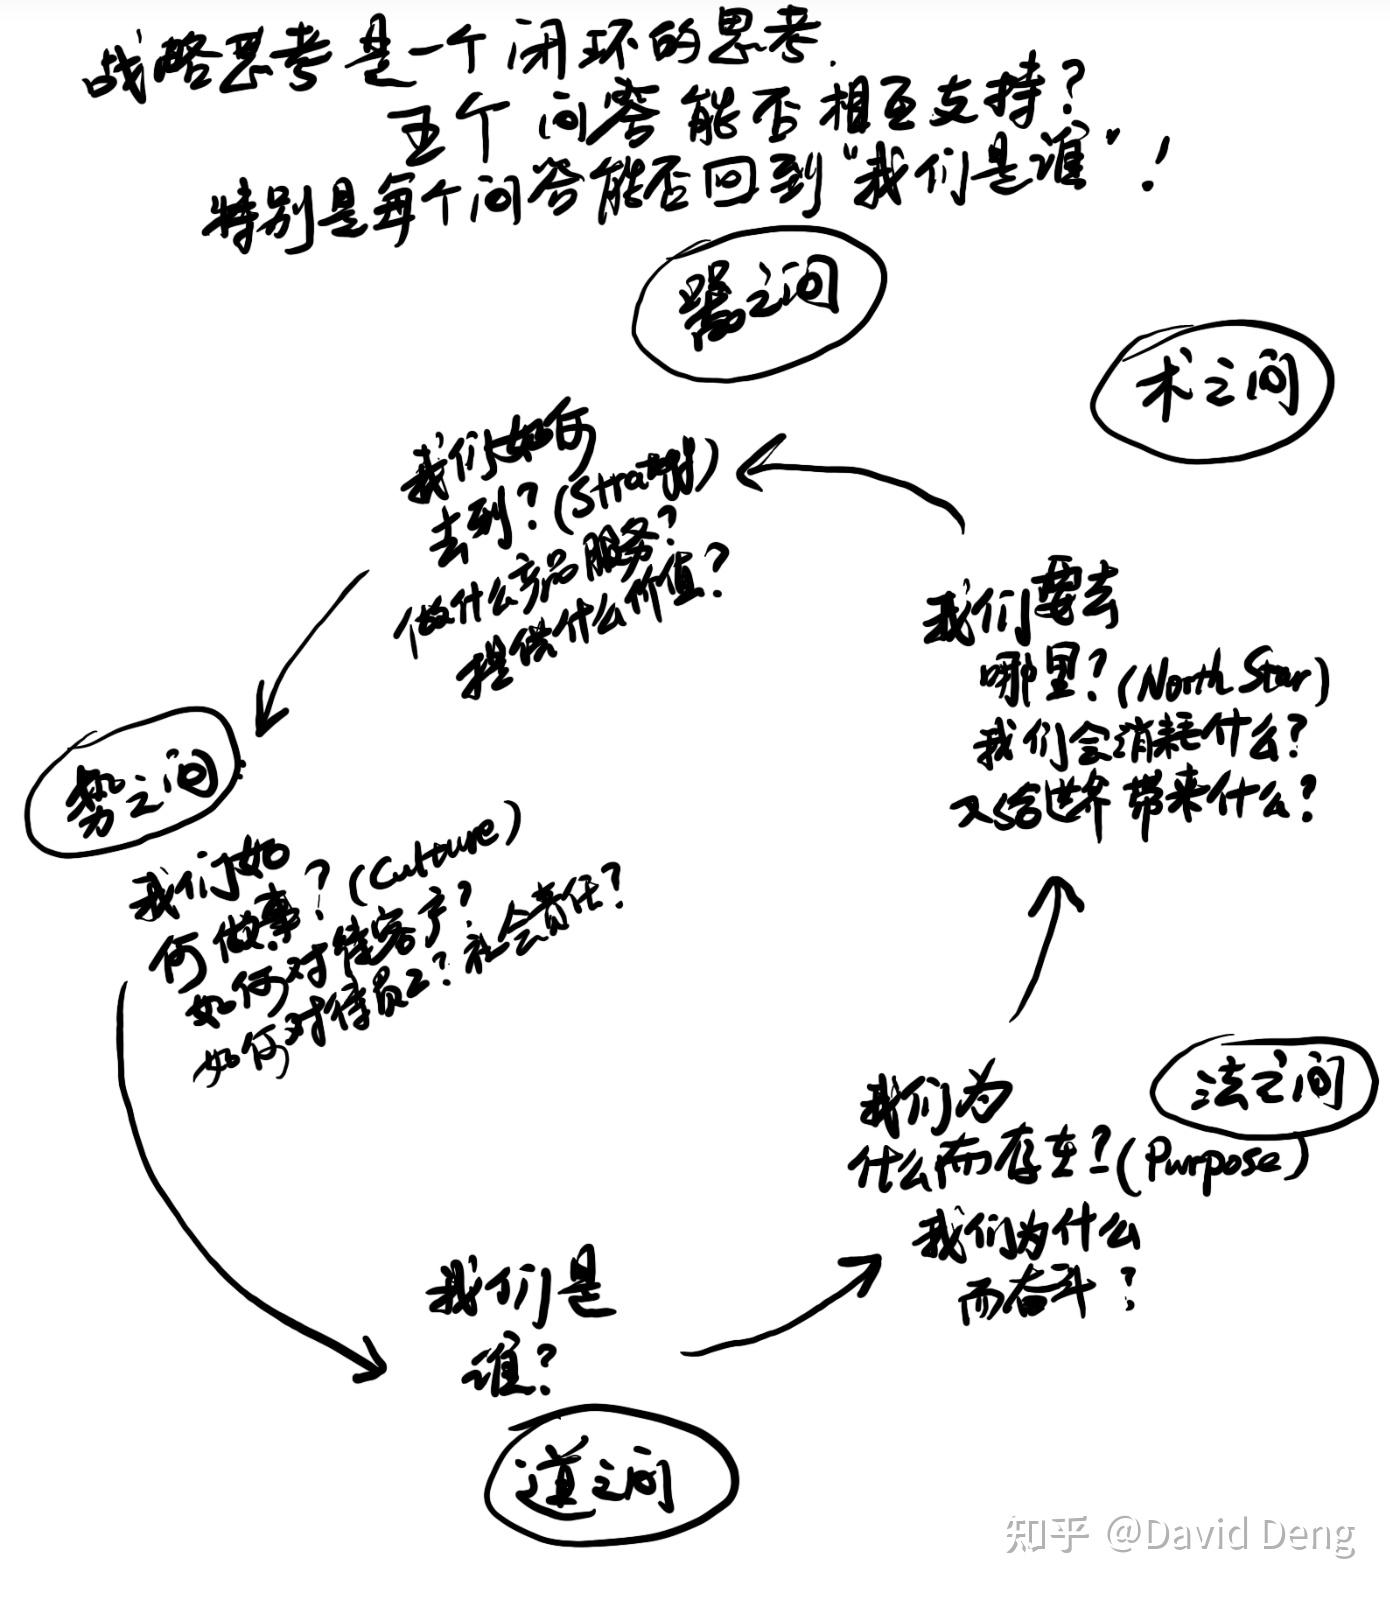 战略思考是一个闭环的思考.
五个问答能否相互支持?
特别是每个问答能否回到“我们是谁”!
器之问
术之问
我们如何
去到?(Strategy)
做什么产品服务?
提供什么价值?
我们要去
哪里?(North Star)
我们会消耗什么?
又给世界带来什么?
势之问
我们如
何做事?(Culture)
如何对待客户?
如何对待员工?社会责任?
我们为
什么而存在?(Purpose)
法之问
我们为什么
而奋斗?
我们是
谁?
道之问
知乎 @David Deng